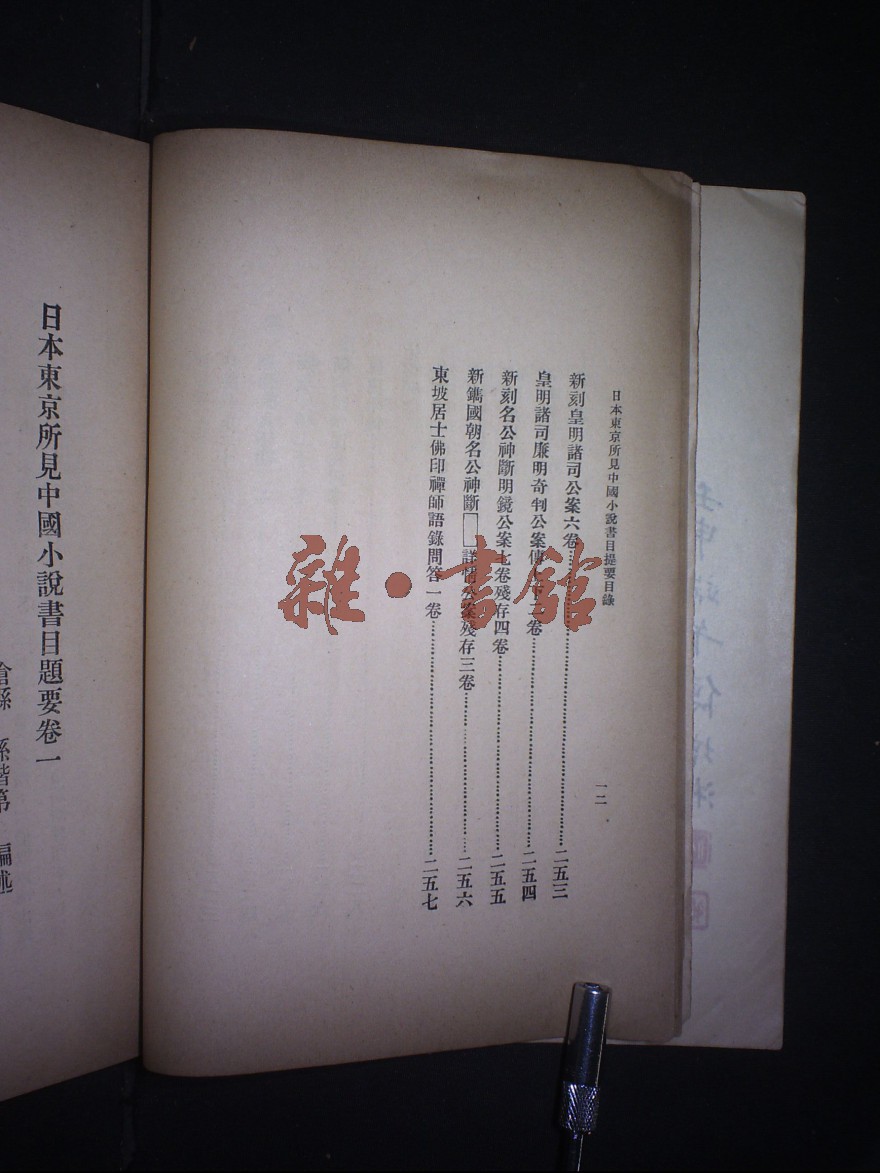 日本東京所見中國小說書目提要目錄
一二
新刻皇明諸司公案六卷…………二五三
皇明諸司廉明奇判公案傳 三卷…………二五四
新刻名公神斷明鏡公案七卷殘存四卷…………二五五
新鐫國朝名公神斷 詳情公案殘存三卷…………二五六
東坡居士佛印禪師語錄問答一卷…………二五七
日本東京所見中國小說書目題要卷一
孫楷第 編述
雜·書館